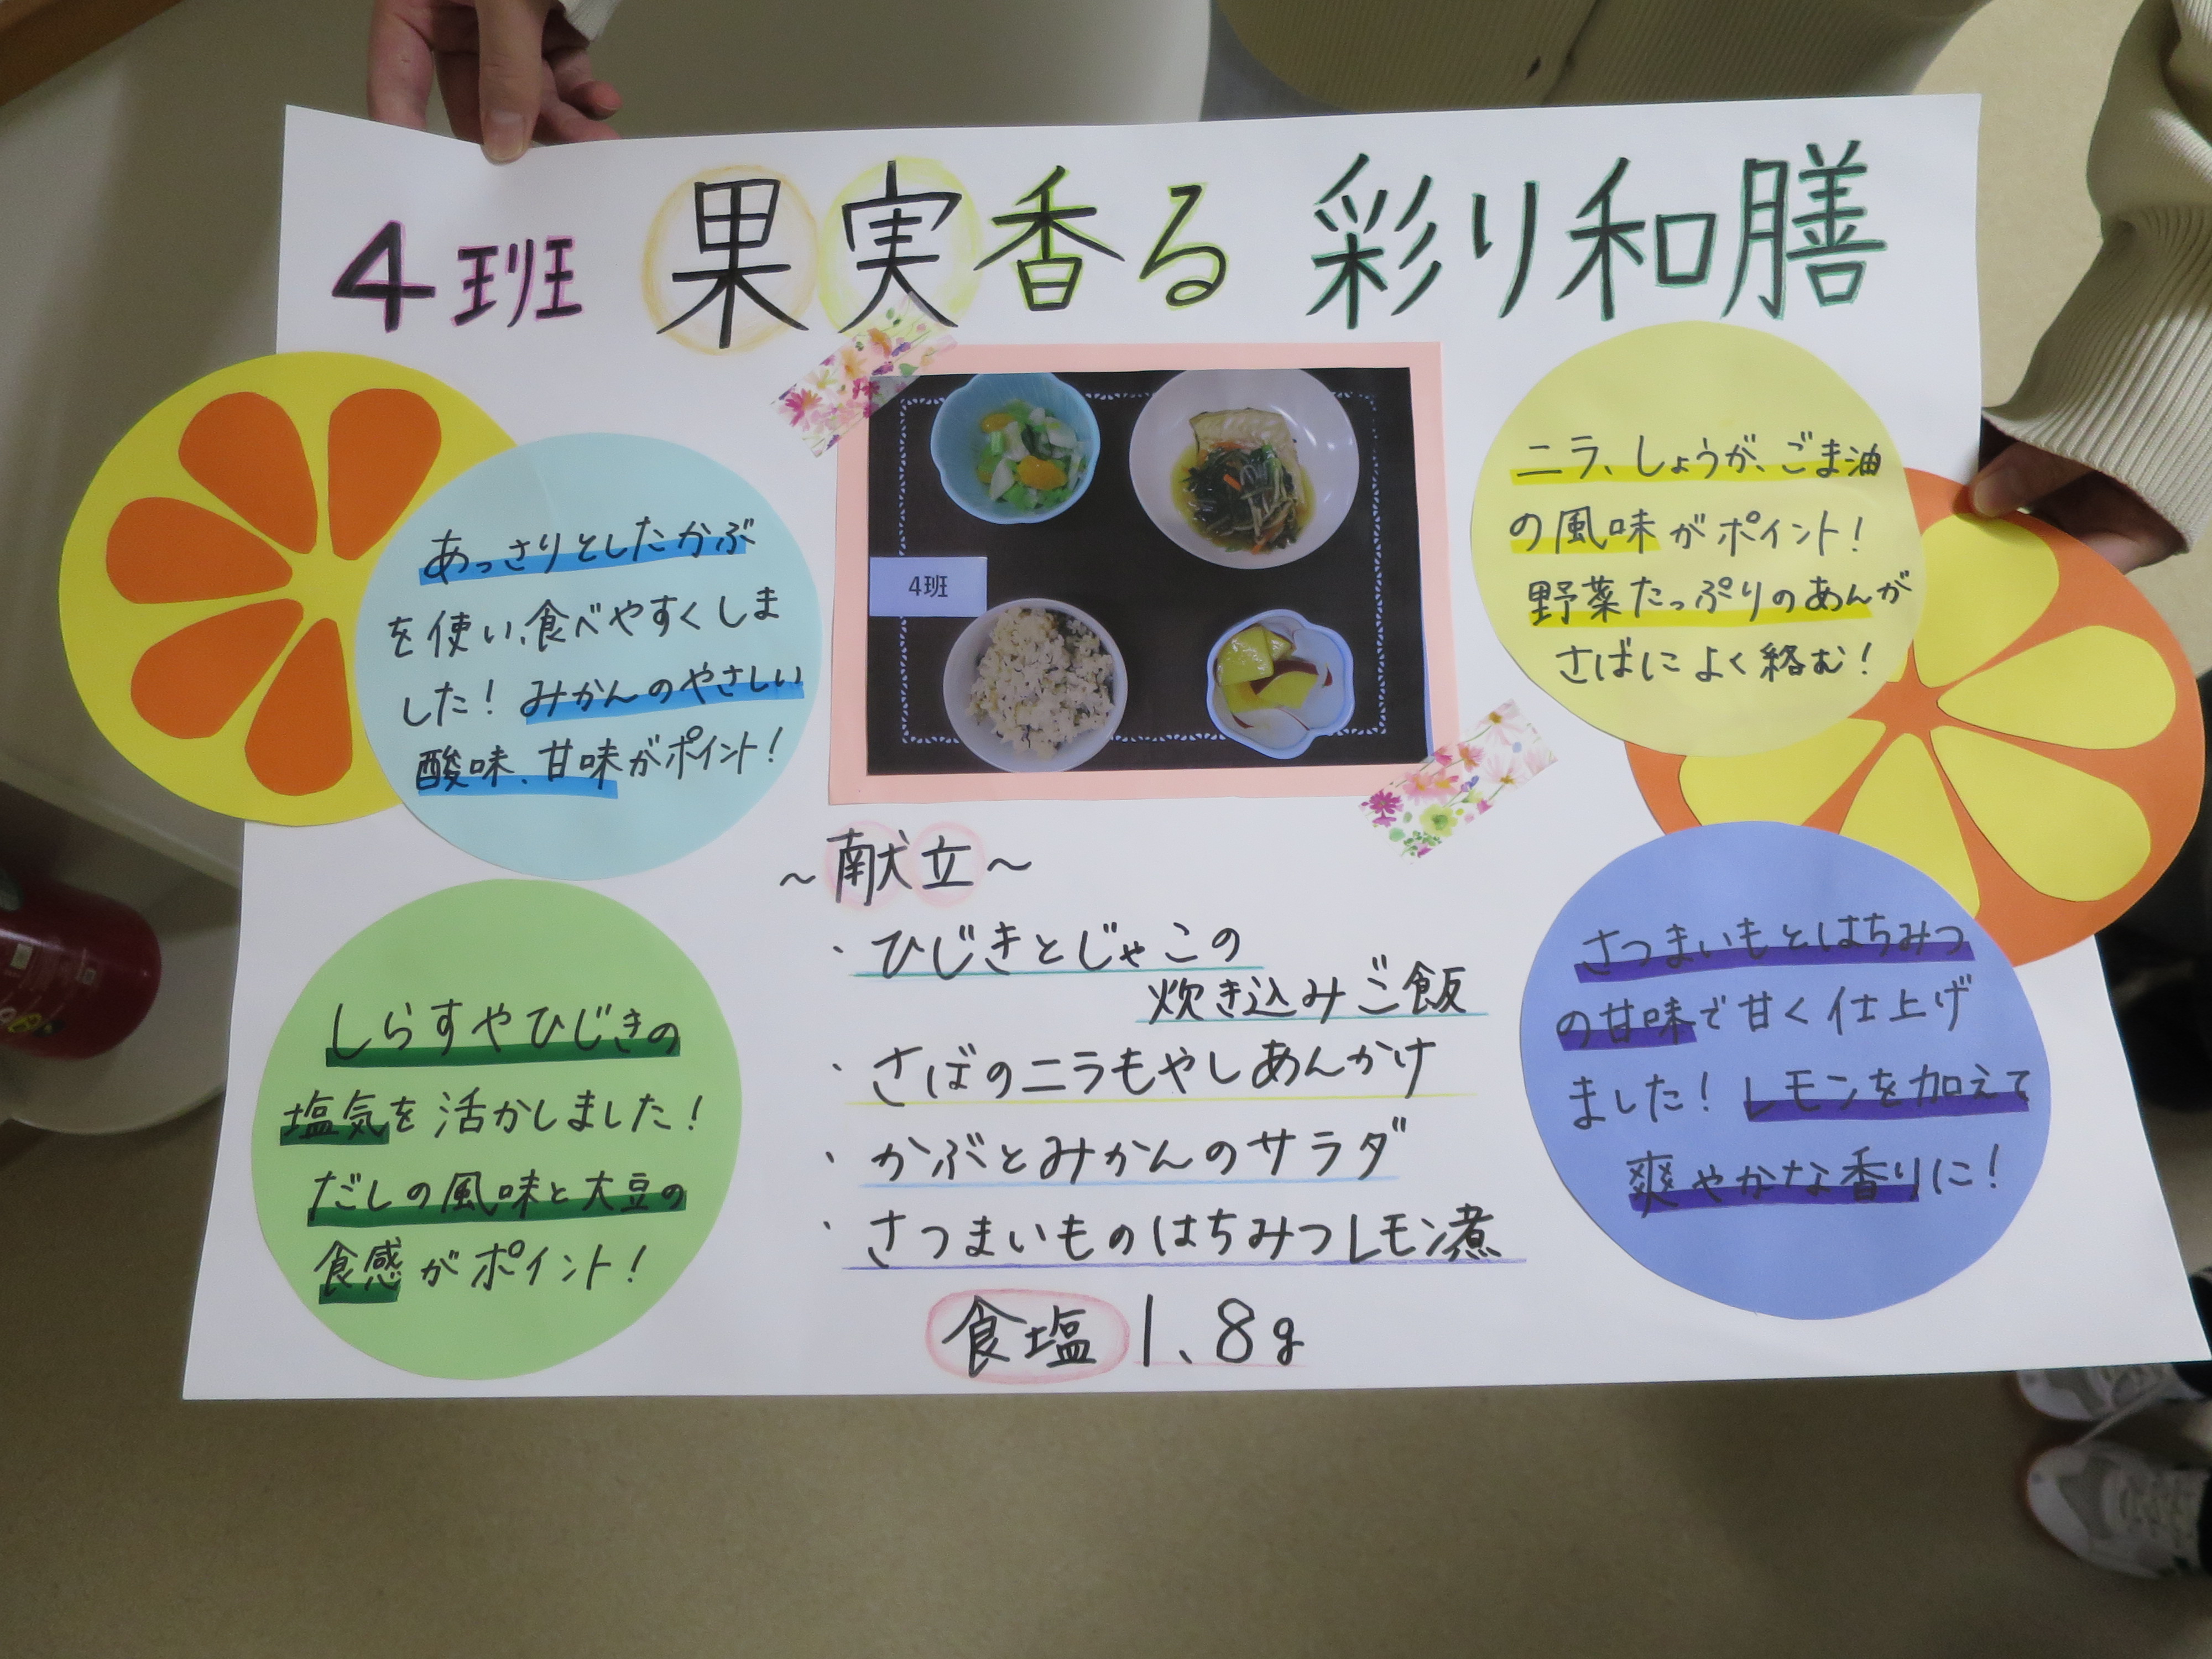 4班 果実香る 彩り和膳
あっさりとしたかぶ
を使い、食べやすくしま
した！みかんのやさしい
酸味、甘味がポイント！
4班
ニラ、しょうが、ごま油
の風味がポイント！
野菜たっぷりのあんが
さばによく絡む！
しらすやひじきの
塩気を活かしました！
だしの風味と大豆の
食感がポイント！
～献立～
・ひじきとじゃこの
炊き込みご飯
・さばのニラもやしあんかけ
・かぶとみかんのサラダ
・さつまいものはちみつレモン煮
食塩 1.8g
さつまいもとはちみつ
の甘味で甘く仕上げ
ました！レモンを加えて
爽やかな香りに！